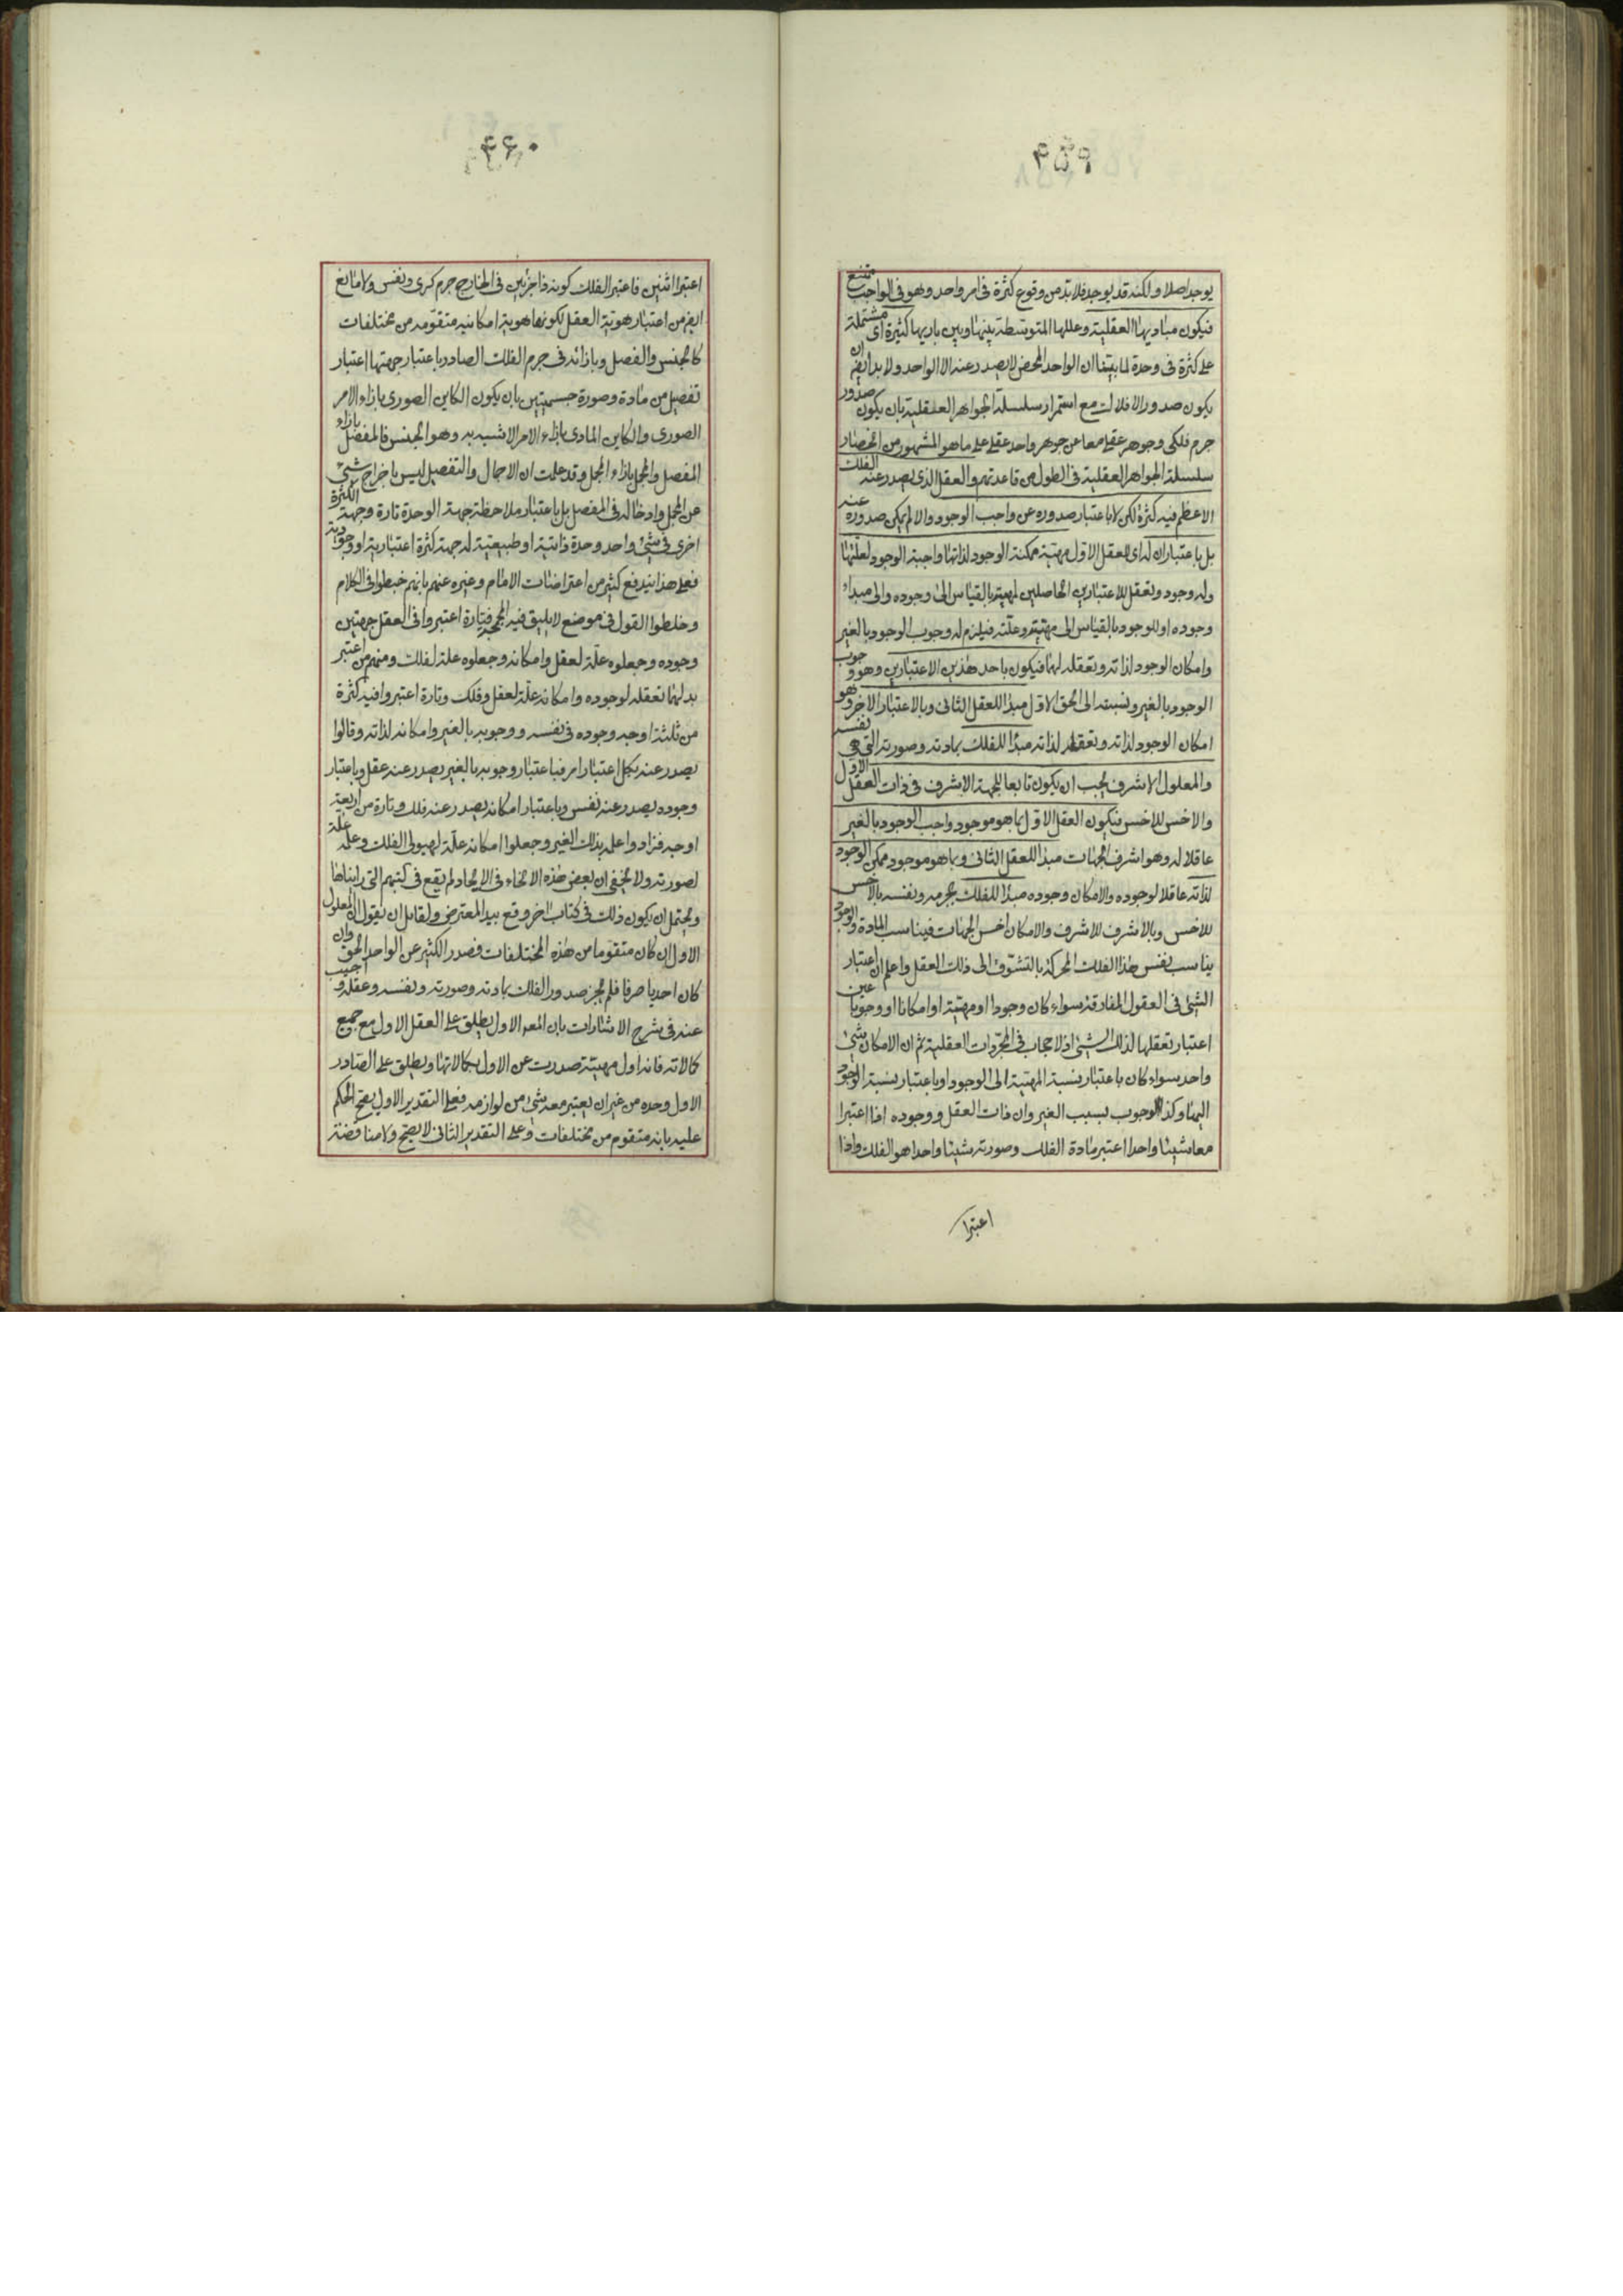 ٤٥٩
يوجد اصلا ولكنه قد يوجد فلابد من وقوع كثرة فى امر واحد وهو فى الواجب ممتنع
فيكون مباديها العقلية وعللها المتوسطة بينها وبين باريها كثيرة اى مشتملة
على كثرة فى وحدة لما بينا ان الواحد المحض لا يصدر عنه الا الواحد ولا بد ايضا ان
يكون صدور الافلاك مع استمرار سلسلة الجواهر العقلية بان يكون صدور
جرم فلكى وجوهر عقلى معا عن جوهر واحد عقلى على ما هو المشهور من انحصار
سلسلة الجواهر العقلية فى الطول من قاعدتهم والعقل الذى يصدر عنه الفلك
الاعظم فيه كثرة لكن لا باعتبار صدوره عن واجب الوجود والا لم يمكن صدوره عنه
بل باعتبار ان له اى للعقل الاول مهية ممكنة الوجود لذاتها واجبة الوجود لعلتها
وله وجود وتعقل للاعتبارين الحاصلين لمهيته بالقياس الى وجوده والى مبداء
وجوده او للوجود بالقياس الى مهيته وعلته فيلزم له وجوب الوجود بالغير
وامكان الوجود لذاته وتعقله لهما فيكون باحد هذين الاعتبارين وهو وجوب
الوجود بالغير ونسبته الى الحق الاول مبدأ للعقل الثانى وبالاعتبار الاخر وهو
امكان الوجود لذاته وتعقله لذاته مبدأ للفلك بمادته وصورته التى هى نفسه
والمعلول الاشرف يجب ان يكون تابعا للجهة الاشرف فى ذات العقل الاول
والاخس للاخس فيكون العقل الاول بما هو موجود واجب الوجود بالغير
عاقلا له وهو اشرف الجهات مبدأ للعقل الثانى وبما هو موجود ممكن الوجود
لذاته عاقلا لوجوده والامكان وجوده مبدأ للفلك بجرمه ونفسه بالاخس
للاخس وبالاشرف للاشرف والامكان اخس الجهات فيناسب المادة والوجود
يناسب نفس هذا الفلك المحركة بالتشوق الى ذلك العقل واعلم ان اعتبار
الشئ فى العقول المفارقة سواء كان وجودا او مهية او امكانا او وجوبا عين
اعتبار تعقلها لذلك الشئ اذ لا حجاب فى المجردات العقلية ثم ان الامكان شئ
واحد سواء كان باعتبار نسبة المهية الى الوجود او باعتبار نسبة الوجود
اليها وكذا الوجوب بسبب الغير وان ذات العقل ووجوده اذا اعتبرا
معا شيئا واحدا اعتبر مادة الفلك وصورته شيئا واحدا هو الفلك واذا
اعتبرا
٤٦٠
اعتبرا اثنين فاعتبر الفلك كونه ذا جزئين فى الخارج جرم كرى ونفس ولا مانع
ايضا من اعتبار هوية العقل لكونها هوية امكانية متقومة من مختلفات
كالجنس والفصل وبازائه فى جرم الفلك الصادر باعتبار جهتها اعتبار
تفصيل من مادة وصورة جسميتين بان يكون الكاين الصورى بازاء الامر
الصورى والكاين المادى بازاء الامر الاشبه به وهو الجنس فالمفصل بازاء
المفصل والمجمل بازاء المجمل وقد علمت ان الاجمال والتفصيل ليس باخراج شئ
عن المجمل وادخاله فى المفصل بل باعتبار ملاحظة جهة الوحدة تارة وجهة الكثرة
اخرى فى شئ واحد وحدة ذاتية او طبيعية له جهة كثرة اعتبارية او وجودية
فعلى هذا يندفع كثير من اعتراضات الامام وغيره عنهم بانهم خبطوا فى الكلام
وخلطوا القول فى موضع لا يليق فيه المجمجة فتارة اعتبروا فى العقل جهتين
وجوده وجعلوه علة لعقل وامكانه وجعلوه علة لفلك ومنهم من اعتبر
بدلهما تعقله لوجوده وامكانه علة لعقل وفلك وتارة اعتبروا فيه كثرة
من ثلثة اوجه وجوده فى نفسه ووجوبه بالغير وامكانه لذاته وقالوا
يصدر عنه بكل اعتبار امر فباعتبار وجوبه بالغير يصدر عنه عقل وباعتبار
وجوده يصدر عنه نفس وباعتبار امكانه يصدر عنه فلك وتارة من اربعة
اوجه فزادوا علمه بذلك الغير وجعلوا امكانه علة لهيولى الفلك وعلمه علة
لصورته ولا يخفى ان بعض هذه الانحاء فى الايجاد لم يقع فى كتبهم التى رايناها
ويحتمل ان يكون ذلك فى كتاب اخر وقع بيد المعترض ولقائل ان يقول ان المعلول
الاول ان كان متقوما من هذه المختلفات فصدر الكثير عن الواحد الحق وان
كان احديا صرفا فلم يجز صدور الفلك بمادته وصورته ونفسه وعقله و اجيب
عنه فى شرح الاشارات بان المعه الاول يطلق على العقل الاول مع جميع
كمالاته فانه اول مهية صدرت عن الاول بكمالاتها ويطلق على الصادر
الاول وحده من غير ان يعتبر معه شئ من لوازمه فعلى التقدير الاول يصح الحكم
عليه بانه متقوم من مختلفات وعلى التقدير الثانى لا يصح ولا مناقضة